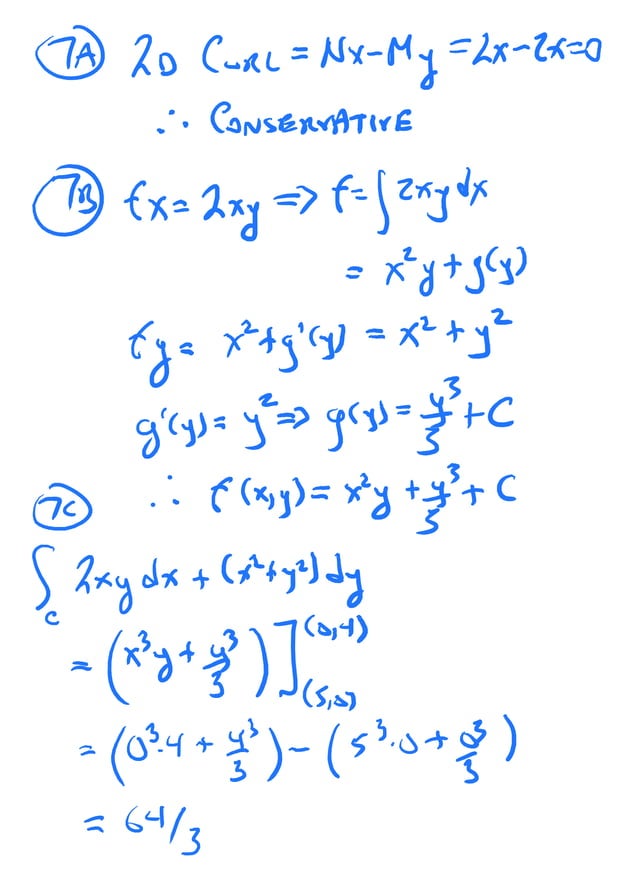 7A 2D CURL = Nx - My = 2x - 2x = 0
∴ CONSERVATIVE
7B fx = 2xy => f = ∫ 2xy dx
= x²y + g(y)
fy = x² + g'(y) = x² + y²
g'(y) = y² => g(y) = y³/3 + C
∴ f(x,y) = x²y + y³/3 + C
7C
∫_C 2xy dx + (x² + y²) dy
= (x³y + y³/3) ] (0,4) (5,0)
= (0³·4 + 4³/3) - (5³·0 + 0³/3)
= 64/3